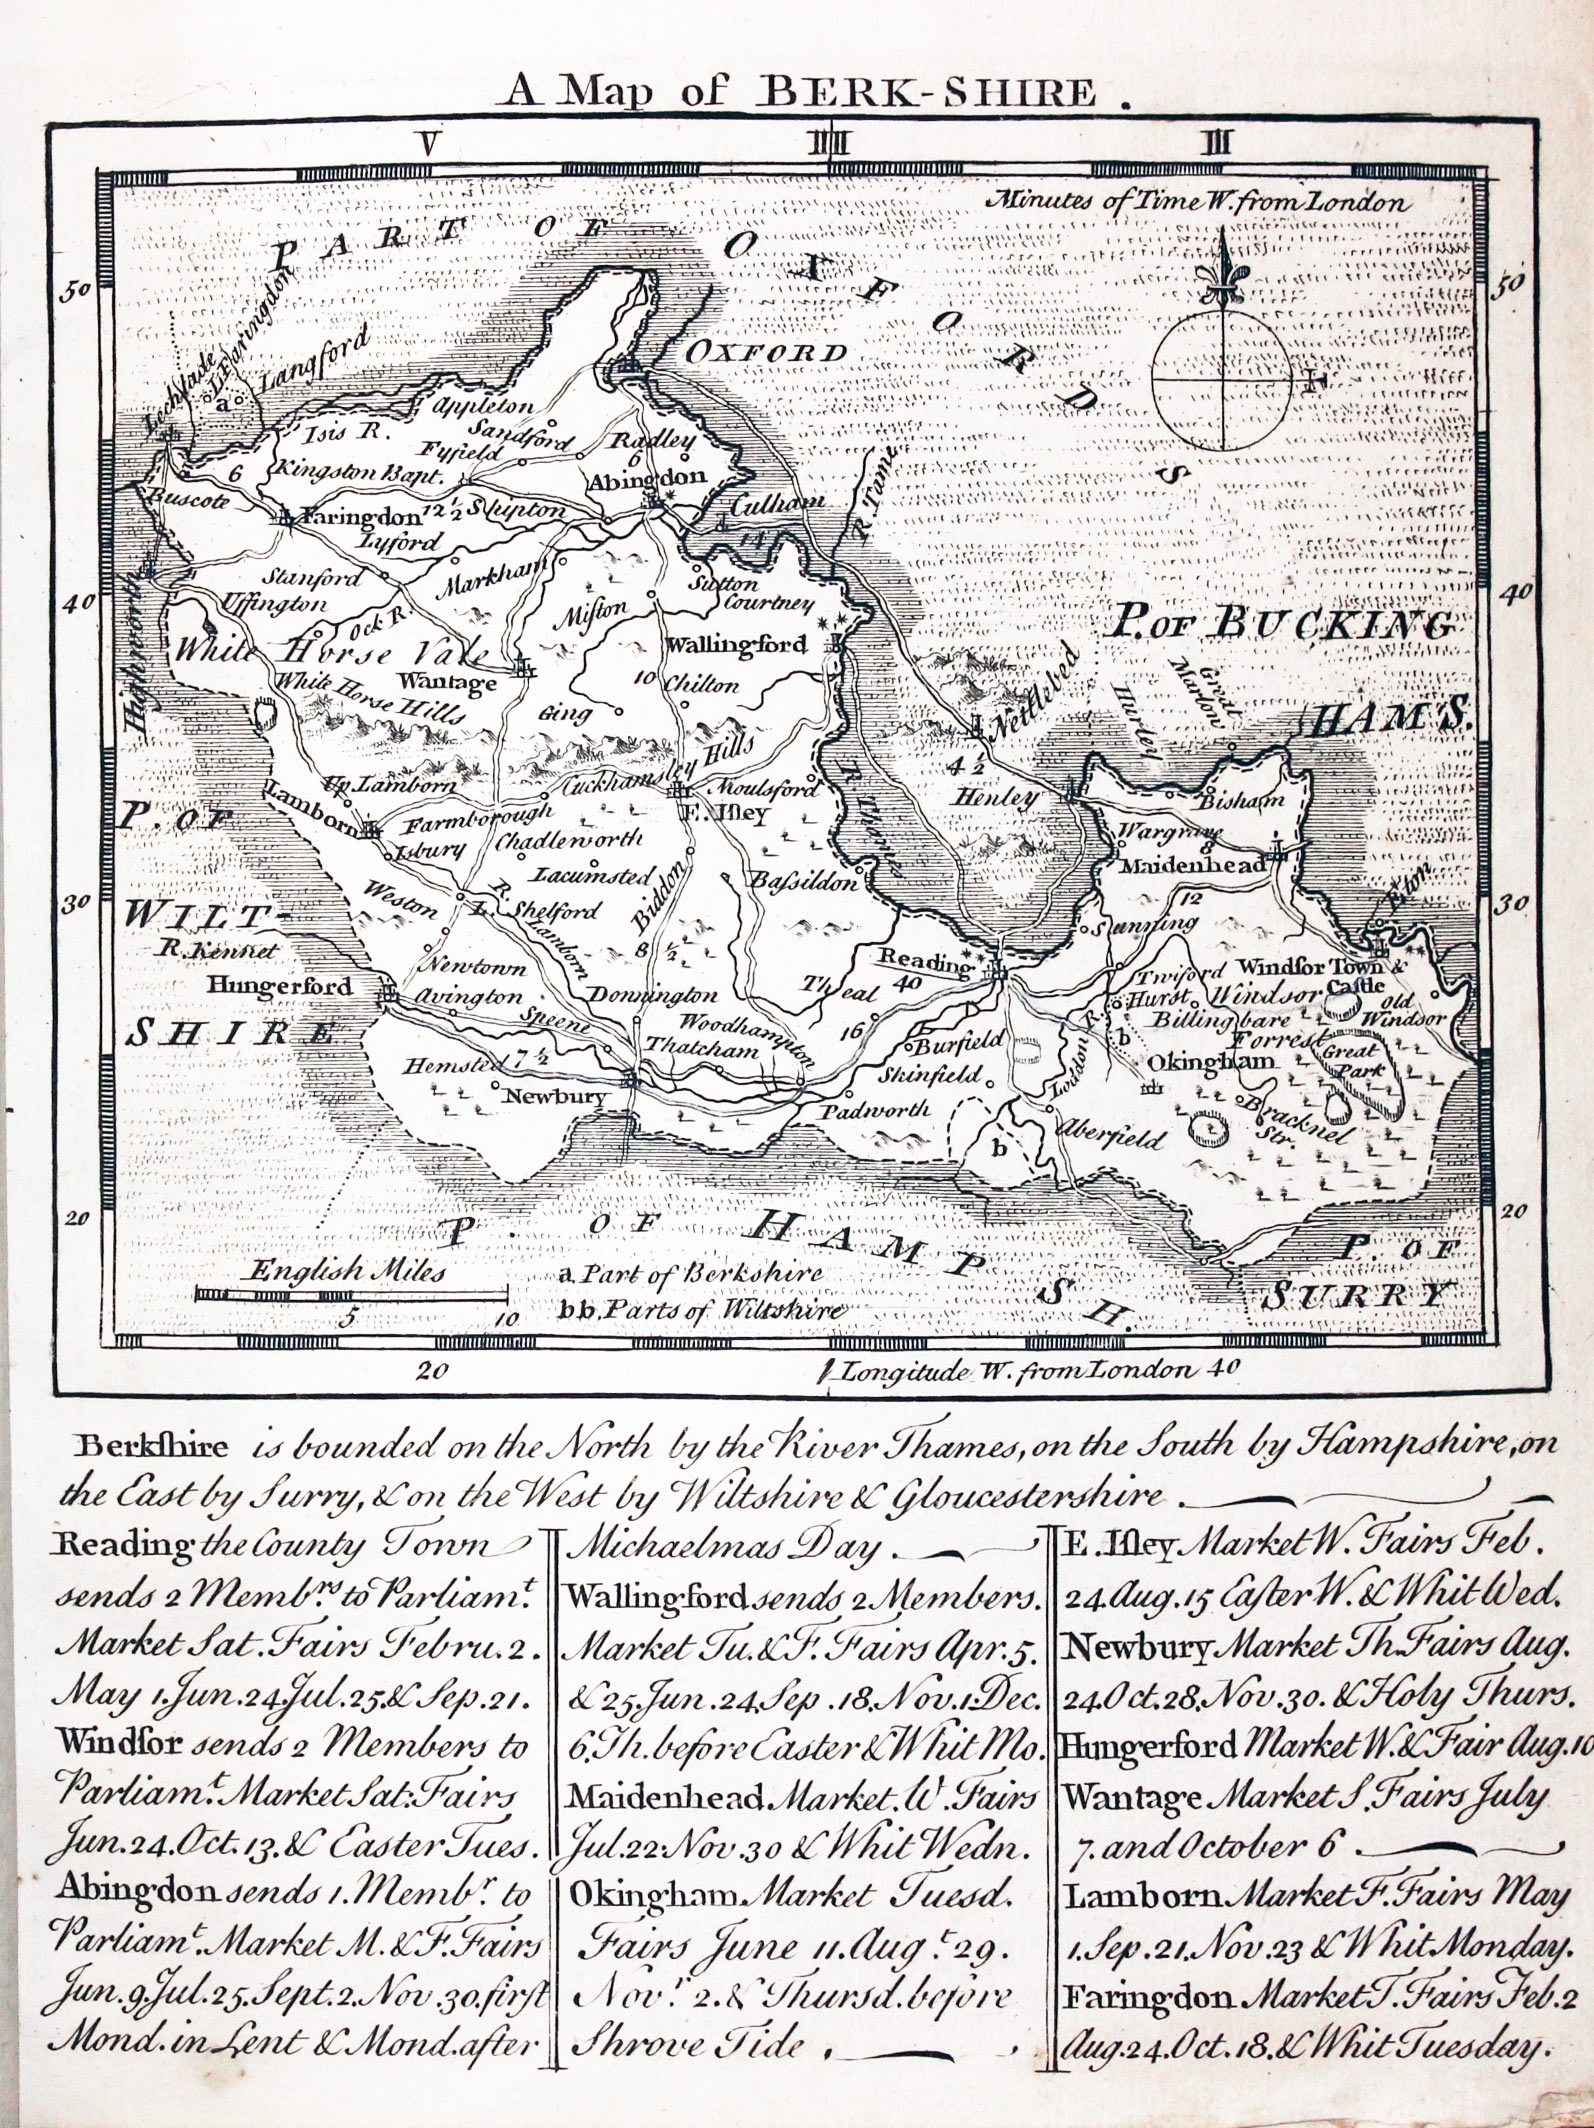 A Map of BERK-SHIRE.
V
IIII
III
Minutes of Time W. from London
PART OF OXFORDS
50
50
Lechlade
L. Faringdon
Langford
a
OXFORD
E
Appleton
Isis R.
Sandford
Radley
Fyfield
6
Kingston Bapt.
Abingdon
R. Tame
Buscote
Faringdon
12½
Shipton
Culham
14
Lyford
Stanford
Markham
Sutton
Courtney
40
40
Highworth
Uffington
Ock R.
Miston
P. OF BUCKING
HAMS.
White Horse Vale
Wallingford
Wantage
10
Chilton
Nettlebed
Great
Marlow
Hurley
White Horse Hills
Ging
Cuckhamsley Hills
4½
Up Lamborn
Moulsford
R. Thames
Henley
Bisham
P. OF
WILT-
SHIRE
Lamborn
Farmborough
E. Iſley
Wargrave
Isbury
Chadleworth
Maidenhead
Lacumsted
Baſsildon
Eton
30
30
Weston
R. Lamborn
Shelford
Biddon
12
Sunning
R. Kennet
8½
Reading
40
Twiford
Windſor Town &
Caſtle
Hungerford
Newtown
Theal
Avington
Donnington
Hurst
Windsor
Forrest
Old
Windsor
Speene
Woodhampton
16
Billingbare
Thatcham
Burfield
Loddon R.
b
Okingham
Great
Park
Hemsted
7½
Skinfield
Newbury
Padworth
Bracknel
Str.
Aberfield
b
20
20
P. OF HAMPSH.
P. OF
SURRY
English Miles
5
10
a Part of Berkshire
bb. Parts of Wiltshire
20
Longitude W. from London
40
Berkſhire is bounded on the North by the River Thames, on the South by Hampshire, on
the East by Surry, & on the West by Wiltshire & Gloucestershire.
Reading the County Town
sends 2 Membrs. to Parliamt.
Market Sat. Fairs Febru. 2.
May 1. Jun. 24. Jul. 25. & Sep. 21.
Windſor sends 2 Members to
Parliamt. Market Sat: Fairs
Jun. 24. Oct. 13. & Easter Tues.
Abingdon sends 1. Membr. to
Parliamt. Market M. & F. Fairs
Jun. 9. Jul. 25. Sept. 2. Nov. 30. firſt
Mond. in Lent & Mond. after
Michaelmas Day.
Wallingford sends 2 Members.
Market Tu. & F. Fairs Apr. 5.
& 25. Jun. 24. Sep. 18. Nov. 1. Dec.
6. Th. before Easter & Whit Mo.
Maidenhead Market. W. Fairs
Jul. 22. Nov. 30 & Whit Wedn.
Okingham Market Tuesd.
Fairs June 11. Augt. 29.
Novr. 2. & Thursd. before
Shrove Tide.
E. Iſley Market W. Fairs Feb.
24. Aug. 15 Eaſter W. & Whit Wed.
Newbury Market Th. Fairs Aug.
24. Oct. 28. Nov. 30. & Holy Thurs.
Hungerford Market W. & Fair Aug. 10
Wantage Market S. Fairs July
7. and October 6.
Lamborn Market F. Fairs May
1. Sep. 21. Nov. 23 & Whit Monday.
Faringdon Market T. Fairs Feb. 2
Aug. 24. Oct. 18. & Whit Tuesday.